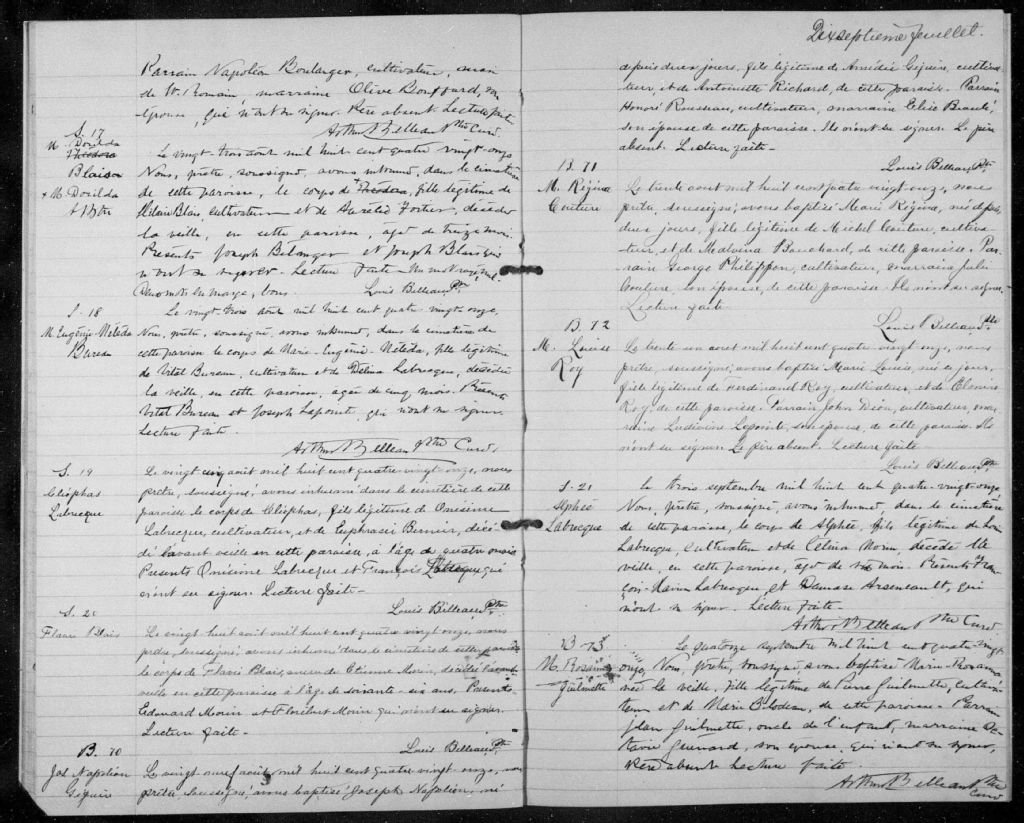 Parrain Napoléon Boulanger, cultivateur,
de St. Romain marraine Olive Bouffard, son
épouse, qui n'ont su signer. Père absent Lecture faite
Arthur Belleau Ptre Curé.
S. 17
M. Dorilda
Théodora
Blais
+ M. Dorilda
Le vingt-trois août mil huit cent quatre vingt-onze
Nous, prêtre, soussigné, avons inhumé, dans le cimetière
de cette paroisse, le corps de Théodora, fille légitime de
Hilaire Blais, cultivateur et de Aurélie Fortier, décédée
la veille, en cette paroisse, agée de treize mois.
Présents Joseph Bélanger et Joseph Blais qui
n'ont su signer. Lecture faite Un mot rayé nul.
Deux mots en marge, bons. Louis Belleau, Ptre
S. 18
M. Eugénie Méléda
Bureau
Le vingt-trois août mil huit cent quatre vingt onze,
Nous, prêtre, soussigné, avons inhumé, dans le cimetière de
cette paroisse le corps de Marie-Eugénie-Méléda, fille légitime
de Vital Bureau, cultivateur et de Délina Labrecque, décédée
la veille, en cette paroisse, agée de cinq mois. Présents
Vital Bureau et Joseph Lapointe, qui n'ont su signer.
Lecture faite.
Arthur Belleau Ptre Curé.
S. 19
Cléophas
Labrecque
Le vingt cinq août mil huit cent quatre-vingt-onze, nous
prêtre, soussigné, avons inhumé dans le cimetière de cette
paroisse le corps de Cléophas, fils légitime de Onésime
Labrecque, cultivateur, et de Euphrasie Bernier, décé-
dé l'avant veille en cette paroisse, à l'âge de quatre mois
Présents Onésime Labrecque et François Labrecque qui
n'ont su signer. Lecture faite-
Louis Belleau, Ptre
S. 21
Flavie Blais
Le vingt huit août mil huit cent quatre vingt onze, nous
prêtre, soussigné, avons inhumé dans le cimetière de cette paroisse
le corps de Flavie Blais, veuve de Etienne Morin, décédée l'avant
veille en cette paroisse à l'âge de soixante-six ans. Présents
Edouard Morin et Floribert Morin qui n'ont su signer.
Lecture faite-
Louis Belleau, Ptre
B. 70
Jos. Napoléon
Seguin
Le vingt neuf août mil huit cent quatre-vingt-onze, nous
prêtre, soussigné, avons baptisé Joseph Napoléon, né
Dixseptième feuillet.
depuis deux jours, fils légitime de Amédée Seguin, cultiva-
teur, et de Antoinette Richard, de cette paroisse. Parrain
Honoré Rousseau, cultivateur, marraine
son épouse de cette paroisse. Ils n'ont su signer. Le père
absent. Lecture faite-
Louis Belleau, Ptre
B. 71
M. Régina
Couture
Le trente août mil huit cent quatre vingt onze, nous
prêtre, soussigné, avons baptisé Marie Régina, née depuis
deux jours, fille légitime de Michel Couture, cultiva-
teur, et de Malvina Bouchard, de cette paroisse. Par-
rain George Philippon, cultivateur, marraine Julie
Couture son épouse, de cette paroisse. Ils n'ont su signer.
Lecture faite
Louis Belleau, Ptre
B. 72
M. Louise
Roy
Le trente un août mil huit cent quatre-vingt onze, nous
prêtre, soussigné, avons baptisé Marie Louise, née ce jour,
fille légitime de Ferdinand Roy, cultivateur, et de
Roy de cette paroisse. Parrain John Dion, cultivateur, mar-
raine Ludivine Lapointe, son épouse, de cette paroisse. Ils
n'ont su signer. Le père absent. Lecture faite
Louis Belleau, Ptre
S. 21
Alphée
Labrecque
Le trois septembre mil huit cent quatre-vingt-onze
Nous, prêtre, soussigné, avons inhumé, dans le cimetière
de cette paroisse, le corps de Alphée, fils légitime de Louis
Labrecque, cultivateur et de Célina Morin, décédé la
veille, en cette paroisse, agé de mois. Présents Fran-
çois-Xavier Labrecque, et Damase Arseneault, qui
n'ont su signer. Lecture faite-
Arthur Belleau Ptre Curé
B-73
M. Rosanna
Guilmette
Le quatorze septembre mil huit cent quatre vingt
onze, Nous, prêtre, soussigné avons baptisé Marie-Rosanna
née la veille, fille légitime de Pierre Guilmette, cultiva-
teur et de Marie Bilodeau, de cette paroisse- Parrain
Jean Guilmette, oncle de l'enfant, marraine Oc-
tavie Guénard, son épouse, qui n'ont su signer,
Père absent. Lecture faite.
Arthur Belleau Ptre
Curé